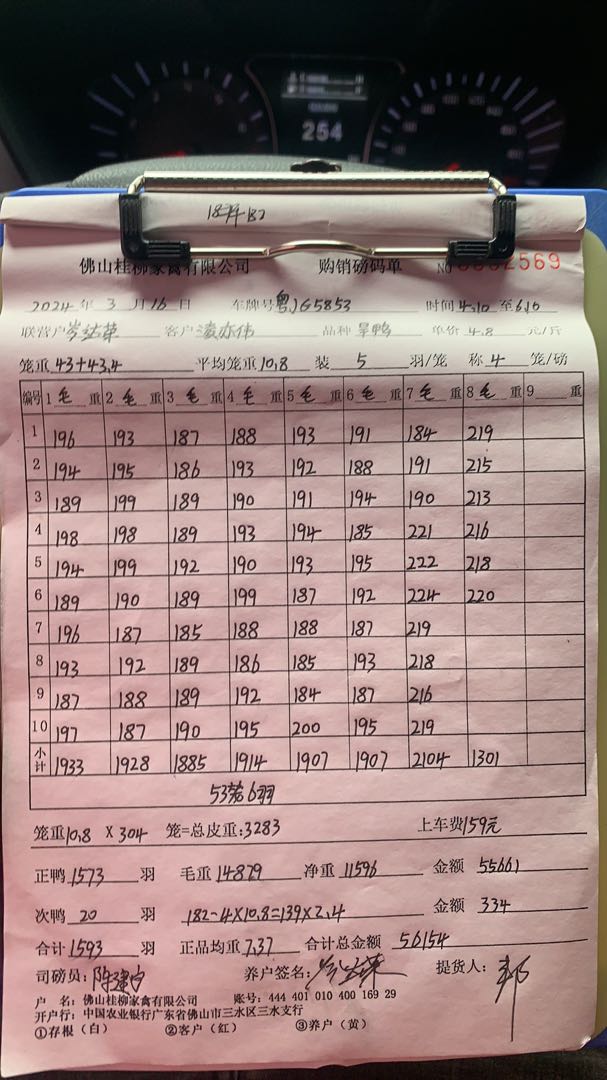 254
佛山桂柳家禽有限公司 购销磅码单 NO 2569
2024年3月16日 车牌号粤JG5853 时间4.10至6.10
联营户岑达荣 客户凌亦伟 品种旱鸭 单价4.8元/斤
笼重43+43.4 平均笼重10.8 装5羽/笼 称4笼/磅
编号 1毛重 2毛重 3毛重 4毛重 5毛重 6毛重 7毛重 8毛重 9重
1 196 193 187 188 193 191 184 219
2 194 195 186 193 192 188 191 215
3 189 199 189 190 191 194 190 213
4 198 198 189 193 194 185 221 216
5 194 199 192 190 193 195 222 218
6 189 190 189 199 187 192 224 220
7 196 187 185 188 188 187 219
8 193 192 189 186 185 193 218
9 187 188 189 192 184 187 216
10 197 187 190 195 200 195 219
小计 1933 1928 1885 1914 1907 1907 2104 1301
53笼6羽
笼重10.8×304笼=总皮重:3283 上车费159元
正鸭1573羽 毛重14879 净重11596 金额55661
次鸭20羽 182-4×10.8=139×2.4 金额334
合计1593羽 正品均重7.37 合计总金额56154
司磅员: 养户签名:岑达荣 提货人:
户 名:佛山桂柳家禽有限公司 账号:444 401 010 400 169 29
开户行:中国农业银行广东省佛山市三水区三水支行
①存根(白) ②客户(红) ③养户(黄)